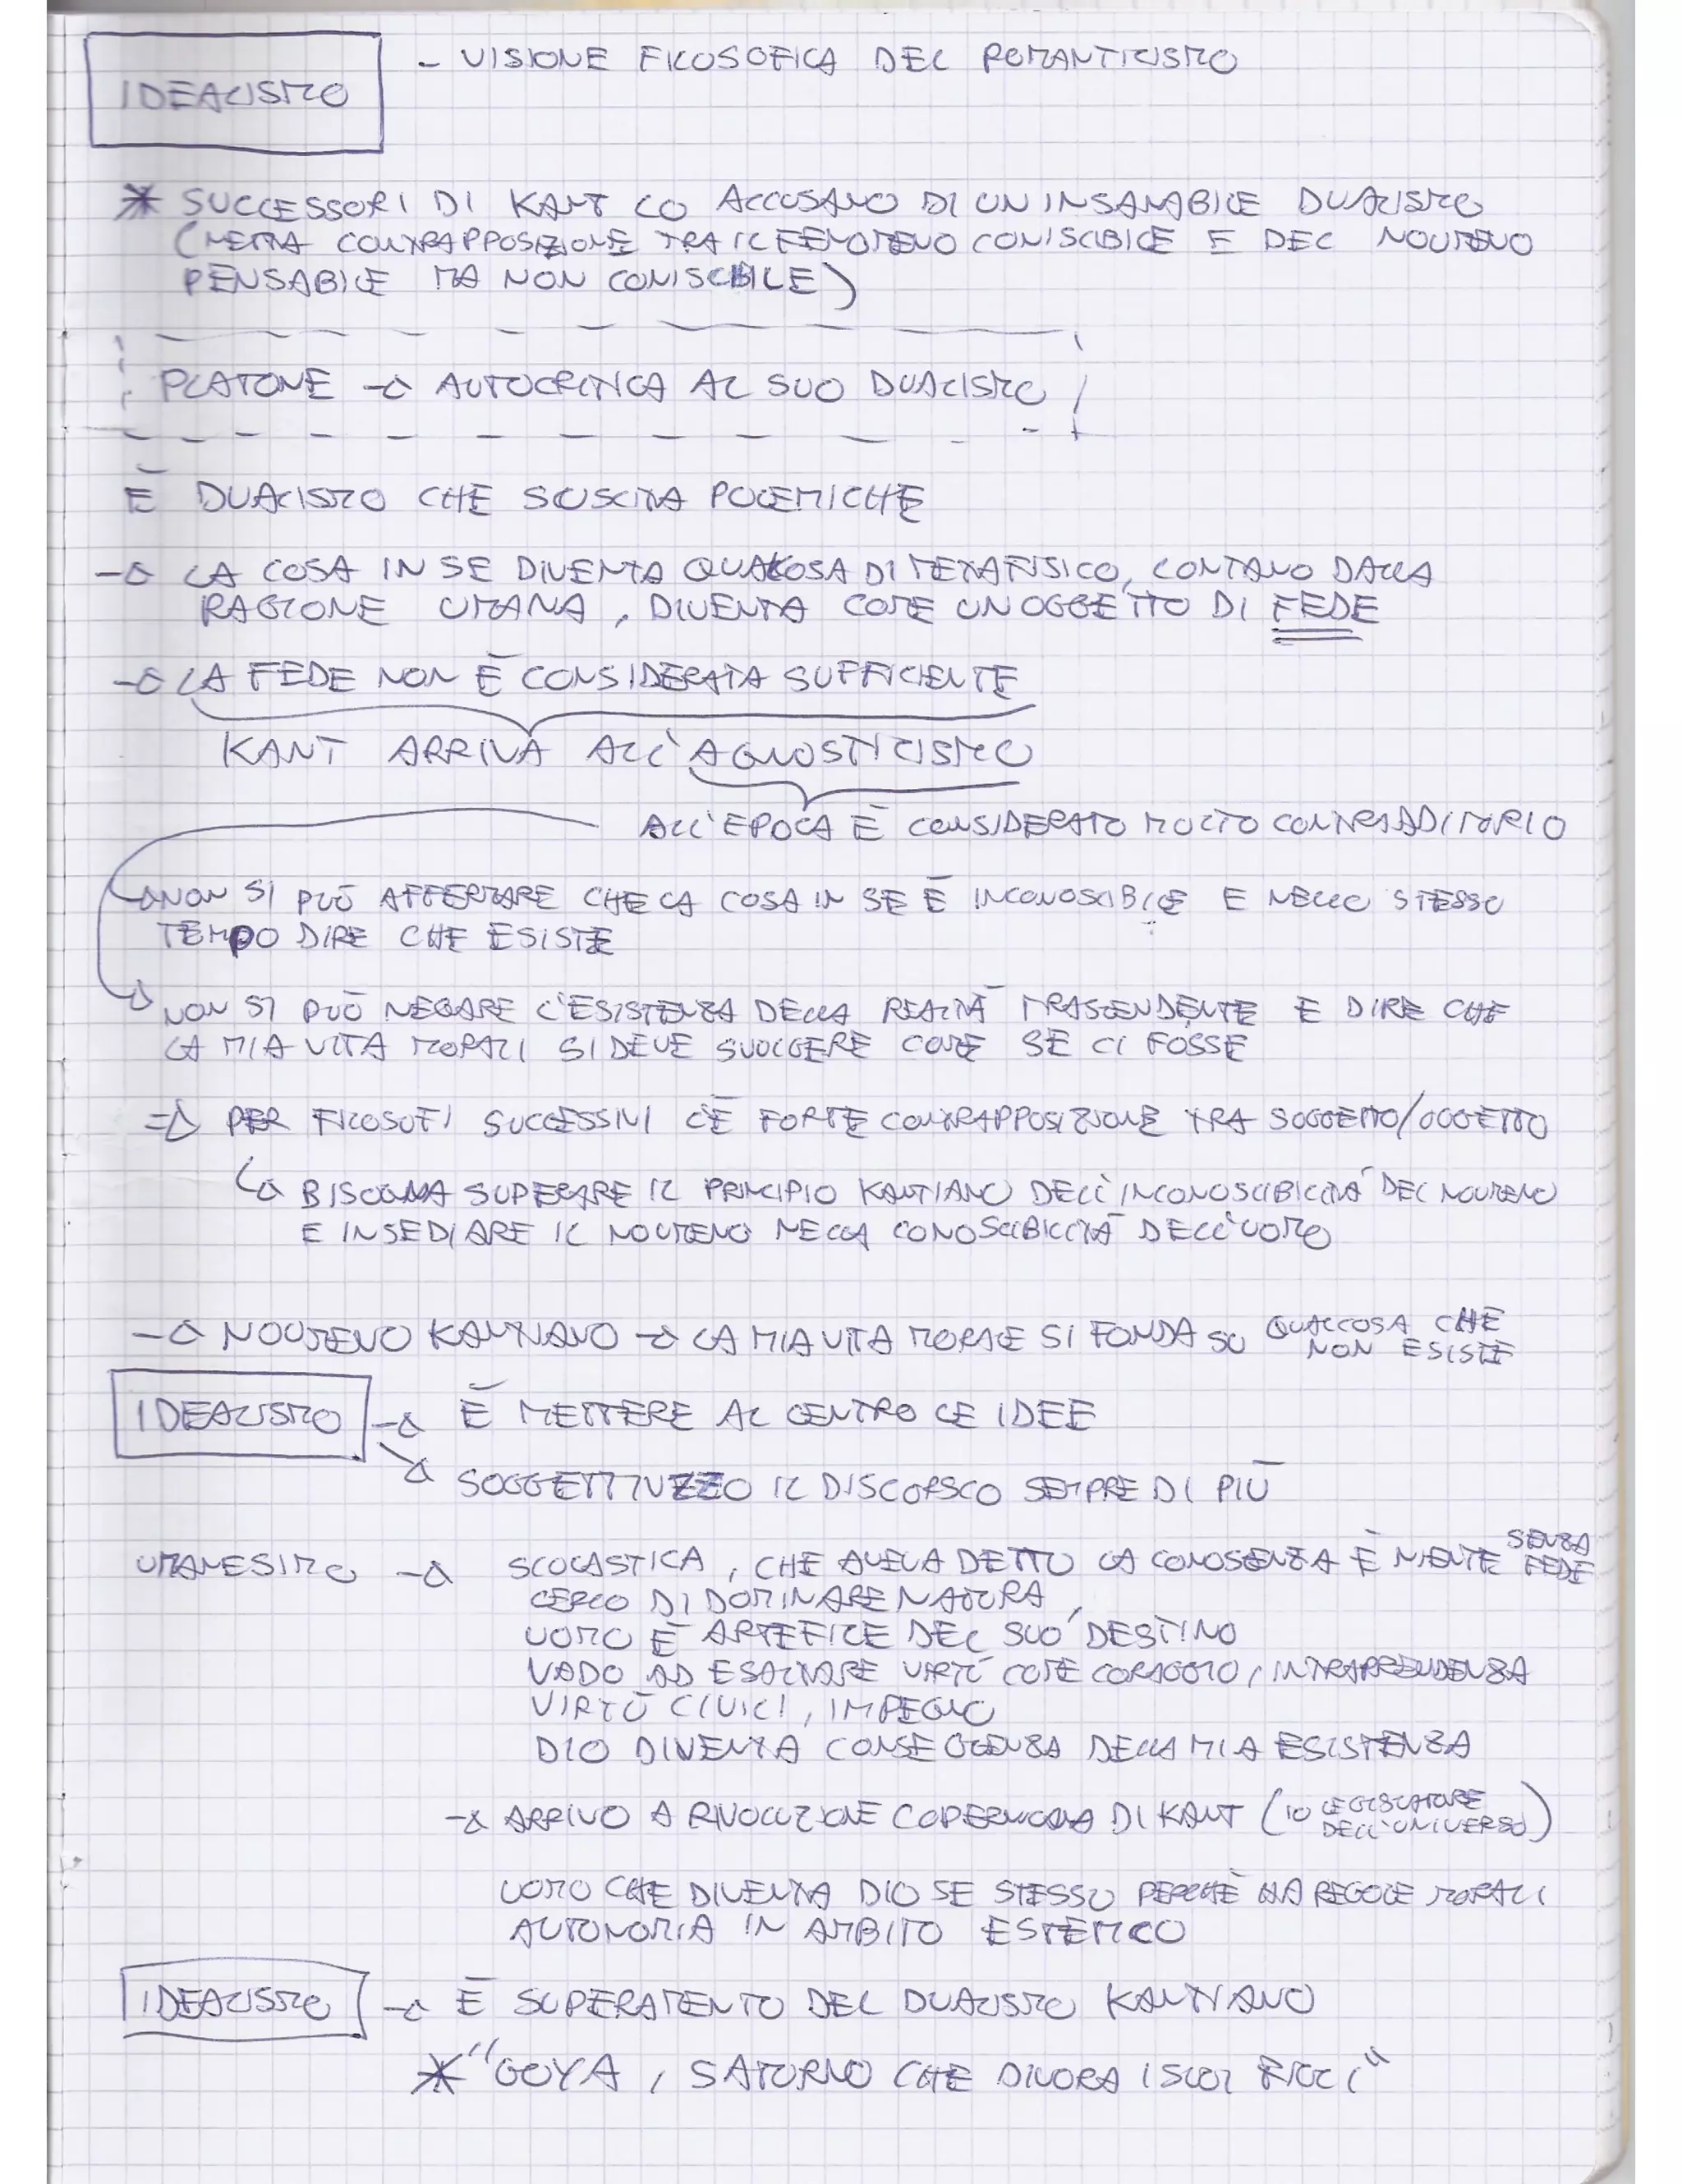 IDEALISMO
- VISIONE FILOSOFICA DEL ROMANTICISMO
* SUCCESSORI DI KANT LO ACCUSANO DI UN INSANABILE DUALISMO
(NETTA CONTRAPPOSIZIONE TRA IL FENOMENO CONISCIBILE E DEL NOUMENO
PENSABILE MA NON CONISCIBILE)
PLATONE → AUTOCRITICA AL SUO DUALISMO
È DUALISMO CHE SUSCITA POLEMICHE
→ LA COSA IN SE DIVENTA QUALCOSA DI METAFISICO, LONTANO DALLA
RAGIONE UMANA, DIVENTA COME UN OGGETTO DI FEDE
→ LA FEDE NON È CONSIDERATA SUFFICIENTE
KANT ARRIVA ALL'AGNOSTICISMO
ALL'EPOCA È CONSIDERATO MOLTO CONTRADDITORIO
→ NON SI PUÒ AFFERMARE CHE LA COSA IN SE È INCONOSCIBILE E NELLO STESSO
TEMPO DIRE CHE ESISTE
→ NON SI PUÒ NEGARE L'ESISTENZA DELLA REALTÀ TRASCENDENTE E DIRE CHE
LA MIA VITA MORALI SI DEVE SVOLGERE COME SE CI FOSSE
⇒ PER FILOSOFI SUCCESSIVI C'È FORTE CONTRAPPOSIZIONE TRA SOGGETTO/OGGETTO
↳ BISOGNA SUPERARE IL PRINCIPIO KANTIANO DELL'INCONOSCIBILITÀ DEL NOUMENO
E INSEDIARE IL NOUMENO NELLA CONOSCIBILITÀ DELL'UOMO
→ NOUMENO KANTIANO → LA MIA VITA MORALE SI FONDA SU QUALCOSA CHE
NON ESISTE
IDEALISMO → È METTERE AL CENTRO LE IDEE
→ SOGGETTIVIZZO IL DISCORSCO SEMPRE DI PIÙ
UMANESIMO → SCOLASTICA, CHE AVEVA DETTO LA CONOSCENZA È NIENTE SENZA
FEDE
CERCO DI DOMINARE NATURA,
UOMO È ARTEFICE DEL SUO DESTINO
VADO AD ESALTARE VIRTÙ COME CORAGGIO, INTRAPRENDENZA
VIRTÙ CIVICI, IMPEGNO
DIO DIVENTA CONSEGUENZA DELLA MIA ESISTENZA
→ ARRIVO A RIVOLUZIONE COPERNICANA DI KANT (IO LEGISLATORE
DELL'UNIVERSO)
UOMO CHE DIVENTA DIO SE STESSO PERCHÈ HA REGOLE MORALI
AUTONOMIA IN AMBITO ESTETICO
IDEALISMO → È SUPERAMENTO DEL DUALISMO KANTIANO
* "GOYA, SATURNO CHE DIVORA I SUOI FIGLI"